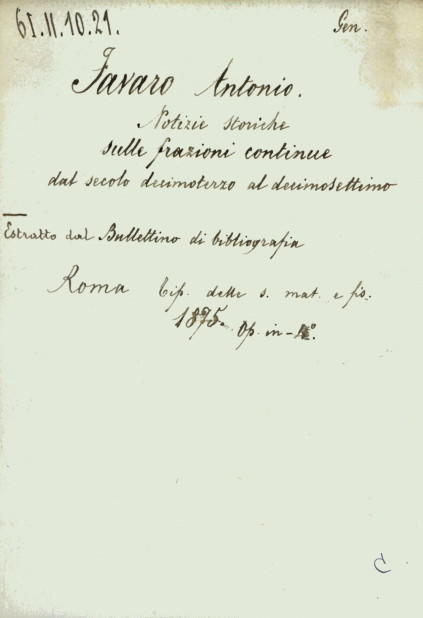 61.II.10.21.
Gen.
Favaro Antonio.
Notizie storiche
sulle frazioni continue
dal secolo decimoterzo al decimosettimo
Estratto dal Bullettino di bibliografia
Roma Tip. delle s. mat. e fis.
1875. Op. in-4°.
C